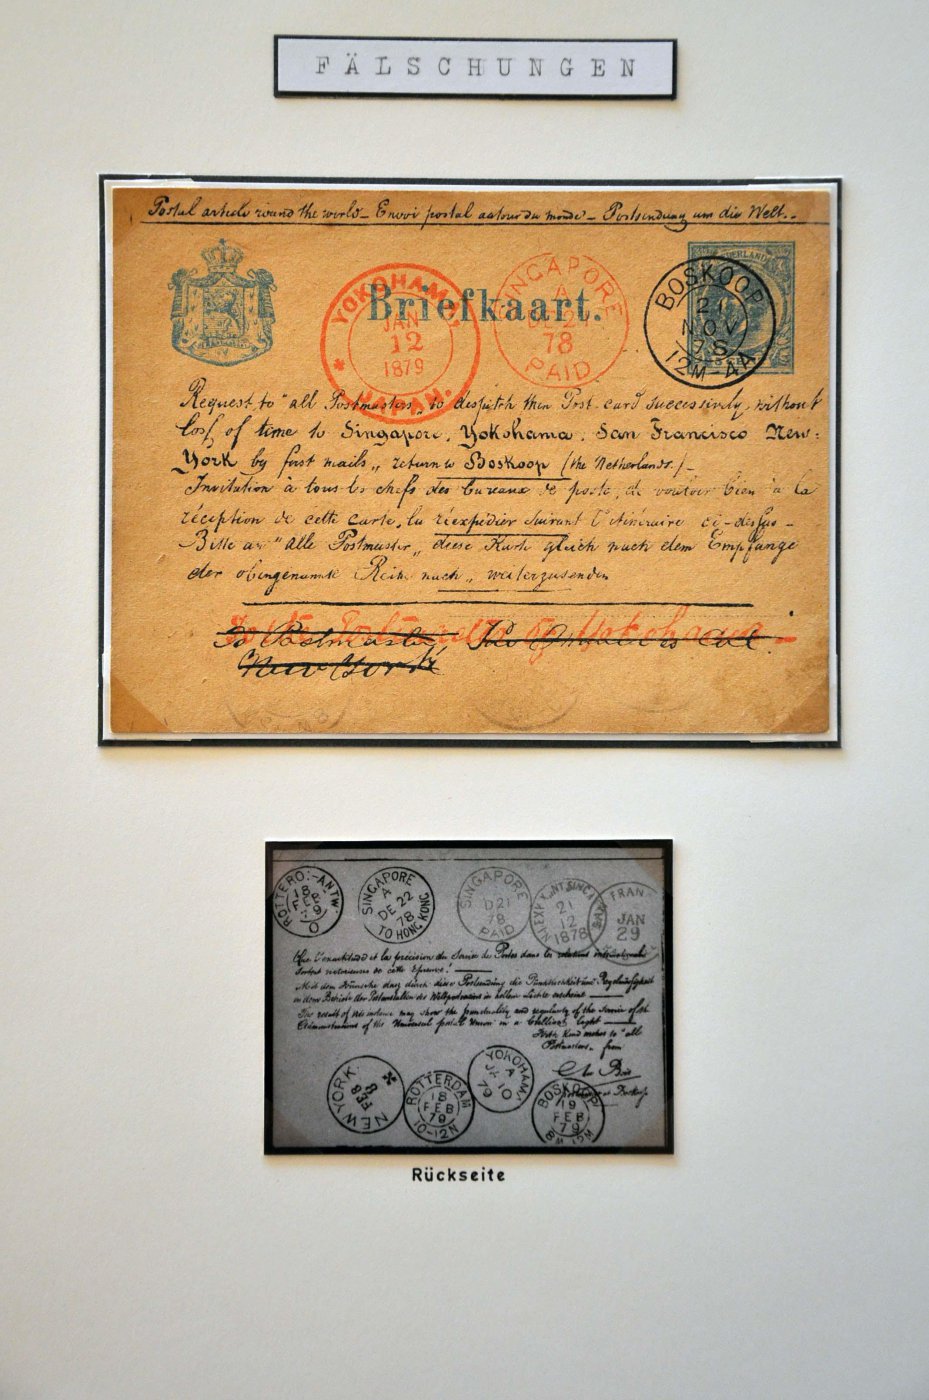 FÄLSCHUNGEN
Postal article round the world_ Envoi postal autour du monde_ Postsendung um die Welt._
Briefkaart.
YOKOHAMA,
JAN
12
1879
JAPAN.
SINGAPORE
A
DE 21
78
PAID
NEDERLAND
BOSKOOP
2
NOV
78
12M-4A
Request to "all Postmasters" to despatch this Post-card successively, without
loss of time to Singapore, Yokohama, San Francisco New-
York by first mails, return to Boskoop (the Netherlands.)_
Invitation à tous les chefs des bureaux de poste, de vouloir bien à la
réception de cette carte, la réexpédier suivant l'itinéraire ci-dessus_
Bitte an "alle Postmaster" diese Karte gleich nach dem Empfange
der obengenannte Reihe nach, weiterzusenden
To the Postmaster of Yokohama_
To Postmaster
New York
Rückseite
ROTTERD:-ANTW
18
FEB
79
O
SINGAPORE
A
DE 22
78
TO HONG KONG
SINGAPORE
D21
78
PAID
21
12
1878
SAN FRAN
JAN
29
Que l'exactitude et la précision du Service des Postes dans les relations internationales
Mit dem Wünsche dasz durch diese Postsendung die Pünktlichkeit und Regelmäszigkeit
in dem Betriebe der Postanstalten des Weltpostvereins in hellem Lichte erscheint
The result of this instance may show the punctuality and regularity of the Service of the
Administrations of the Universal postal Union in a brilliant light
With kind wishes to "all
Postmasters" from
NEW YORK
FEB
8
ROTTERDAM
18
FEB
79
10-12N
YOKOHAMA
A
JA 10
79
BOSKOOP
19
FEB
79